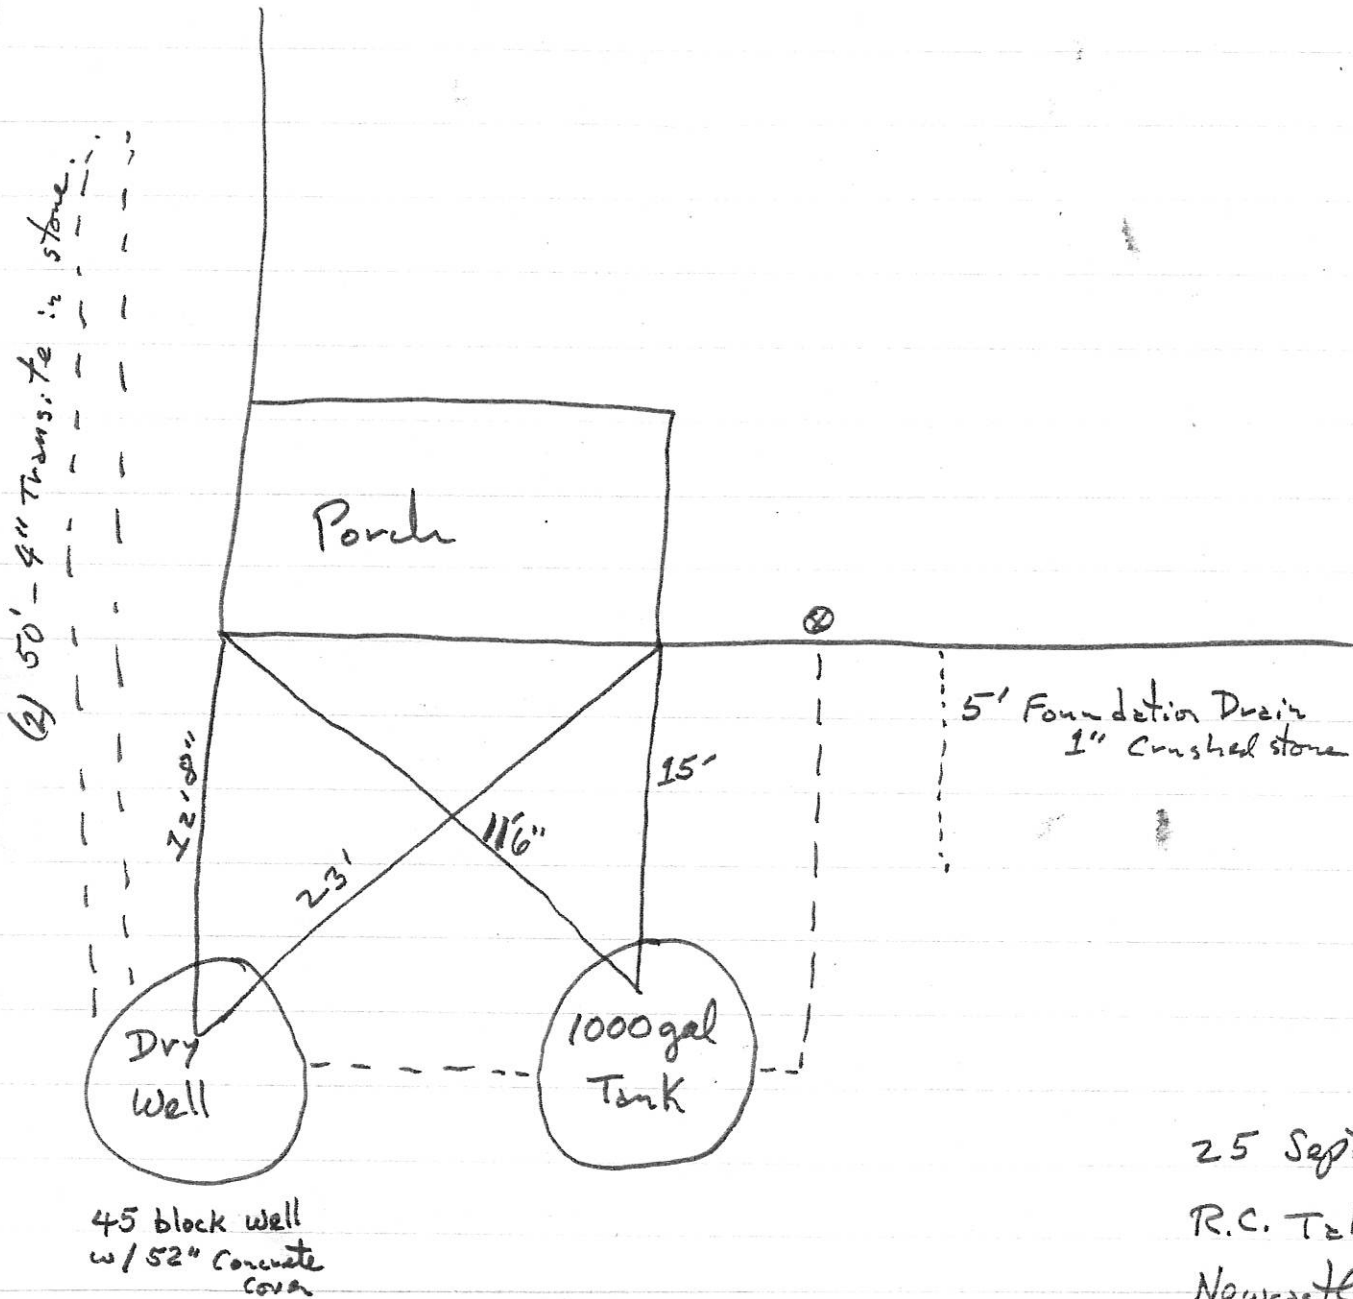 (2) 50' - 4" Transite in stone.
Porch
⊗
5' Foundation Drain
1" Crushed stone
12'8"
23'
11'6"
15'
Dry
Well
1000 gal
Tank
45 block well
w/ 52" Concrete
Cover
25 Sep
R.C.